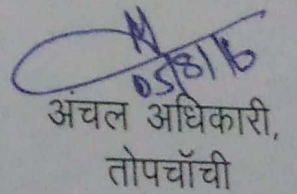 05/8/15
अंचल अधिकारी,
तोपचाँची